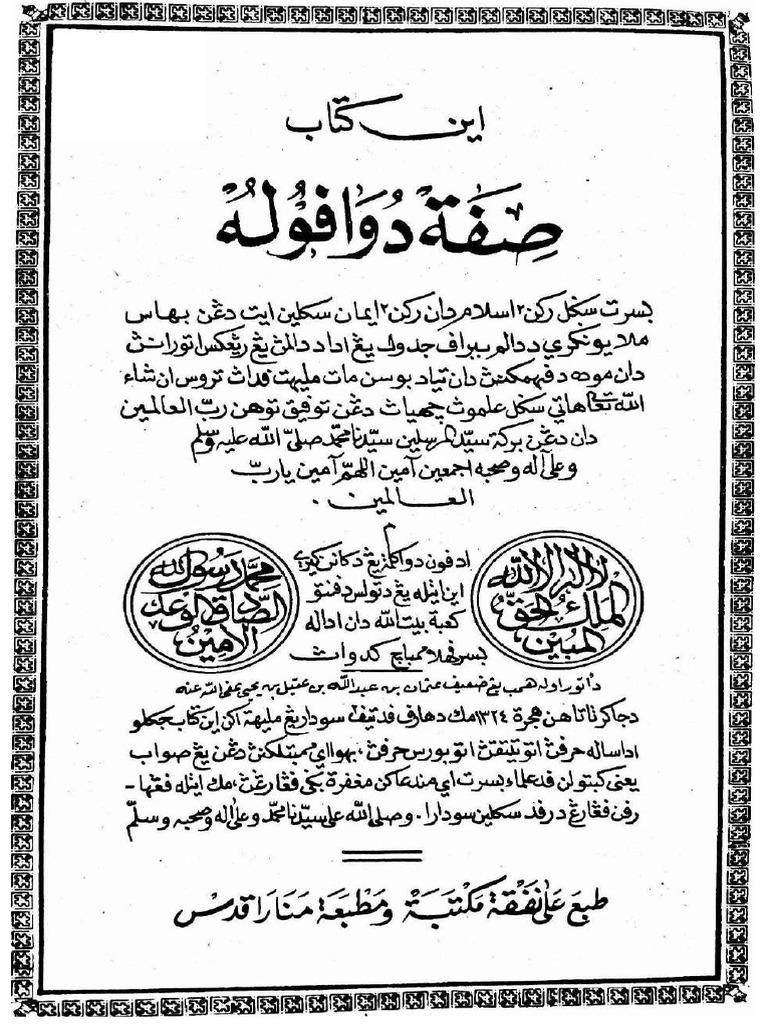 اين كتاب
صِفَة دُوَا فُوْلُهْ
بسرت سݢل ركن٢ اسلام دان ركن٢ ايمان سكلين ايت دڠن بهاس
ملايو يڠ دالم ببراف جدول يڠ اد دالمڽ يڠ ريڠكس اتورانڽ
دان موده دفهمكنڽ دان تياد بوسن مات مليهت فداڽ تروس ان شاء
الله تعالى هاتي سݢل علموڽ دڠن توفيق توهن ربّ العالمين
دان دڠن بركة سيّد المرسلين سيّدنا محمّد صلّى الله عليه وسلّم
وعلى آله وصحبه اجمعين آمين اللهمّ آمين يا ربّ
العالمين .
لا اله الا الله
الملك الحق
المبين
ادفون دوا يڠ دكانن كيري
اين ايله يڠ دتولس دفنتو
كعبة بيت الله دان اداله
بسر فهلا ممباچ كدواڽ
محمّد رسول الله
الصّادق الوعد
الامين
داتور اوله همب يڠ ضعيف عثمان بن عبدالله بن عقيل بن يحيى عفى الله عنه
دجاكرتا تاهن هجرة ١٣٢٤ مك دهارف فد تيف٢ سودار يڠ مليهة اكن اين كتاب جكلو
اد ساله حرفڽ اتو تيتيقڽ اتو بورس حرفڽ، بهوا اي ممبتلكنڽ دڠن يڠ صواب
يعني كبتولن فد علماء بسرت اي منداعاكن مغفرة بݢي فڠارڠڽ، مك ايله فڠها-
رفن فڠارڠ درفد سكلين سودارا . وصلى الله على سيّدنا محمّد وعلى اله وصحبه وسلّم
طبع على نفقة مكتبة ومطبعة منارا قدس